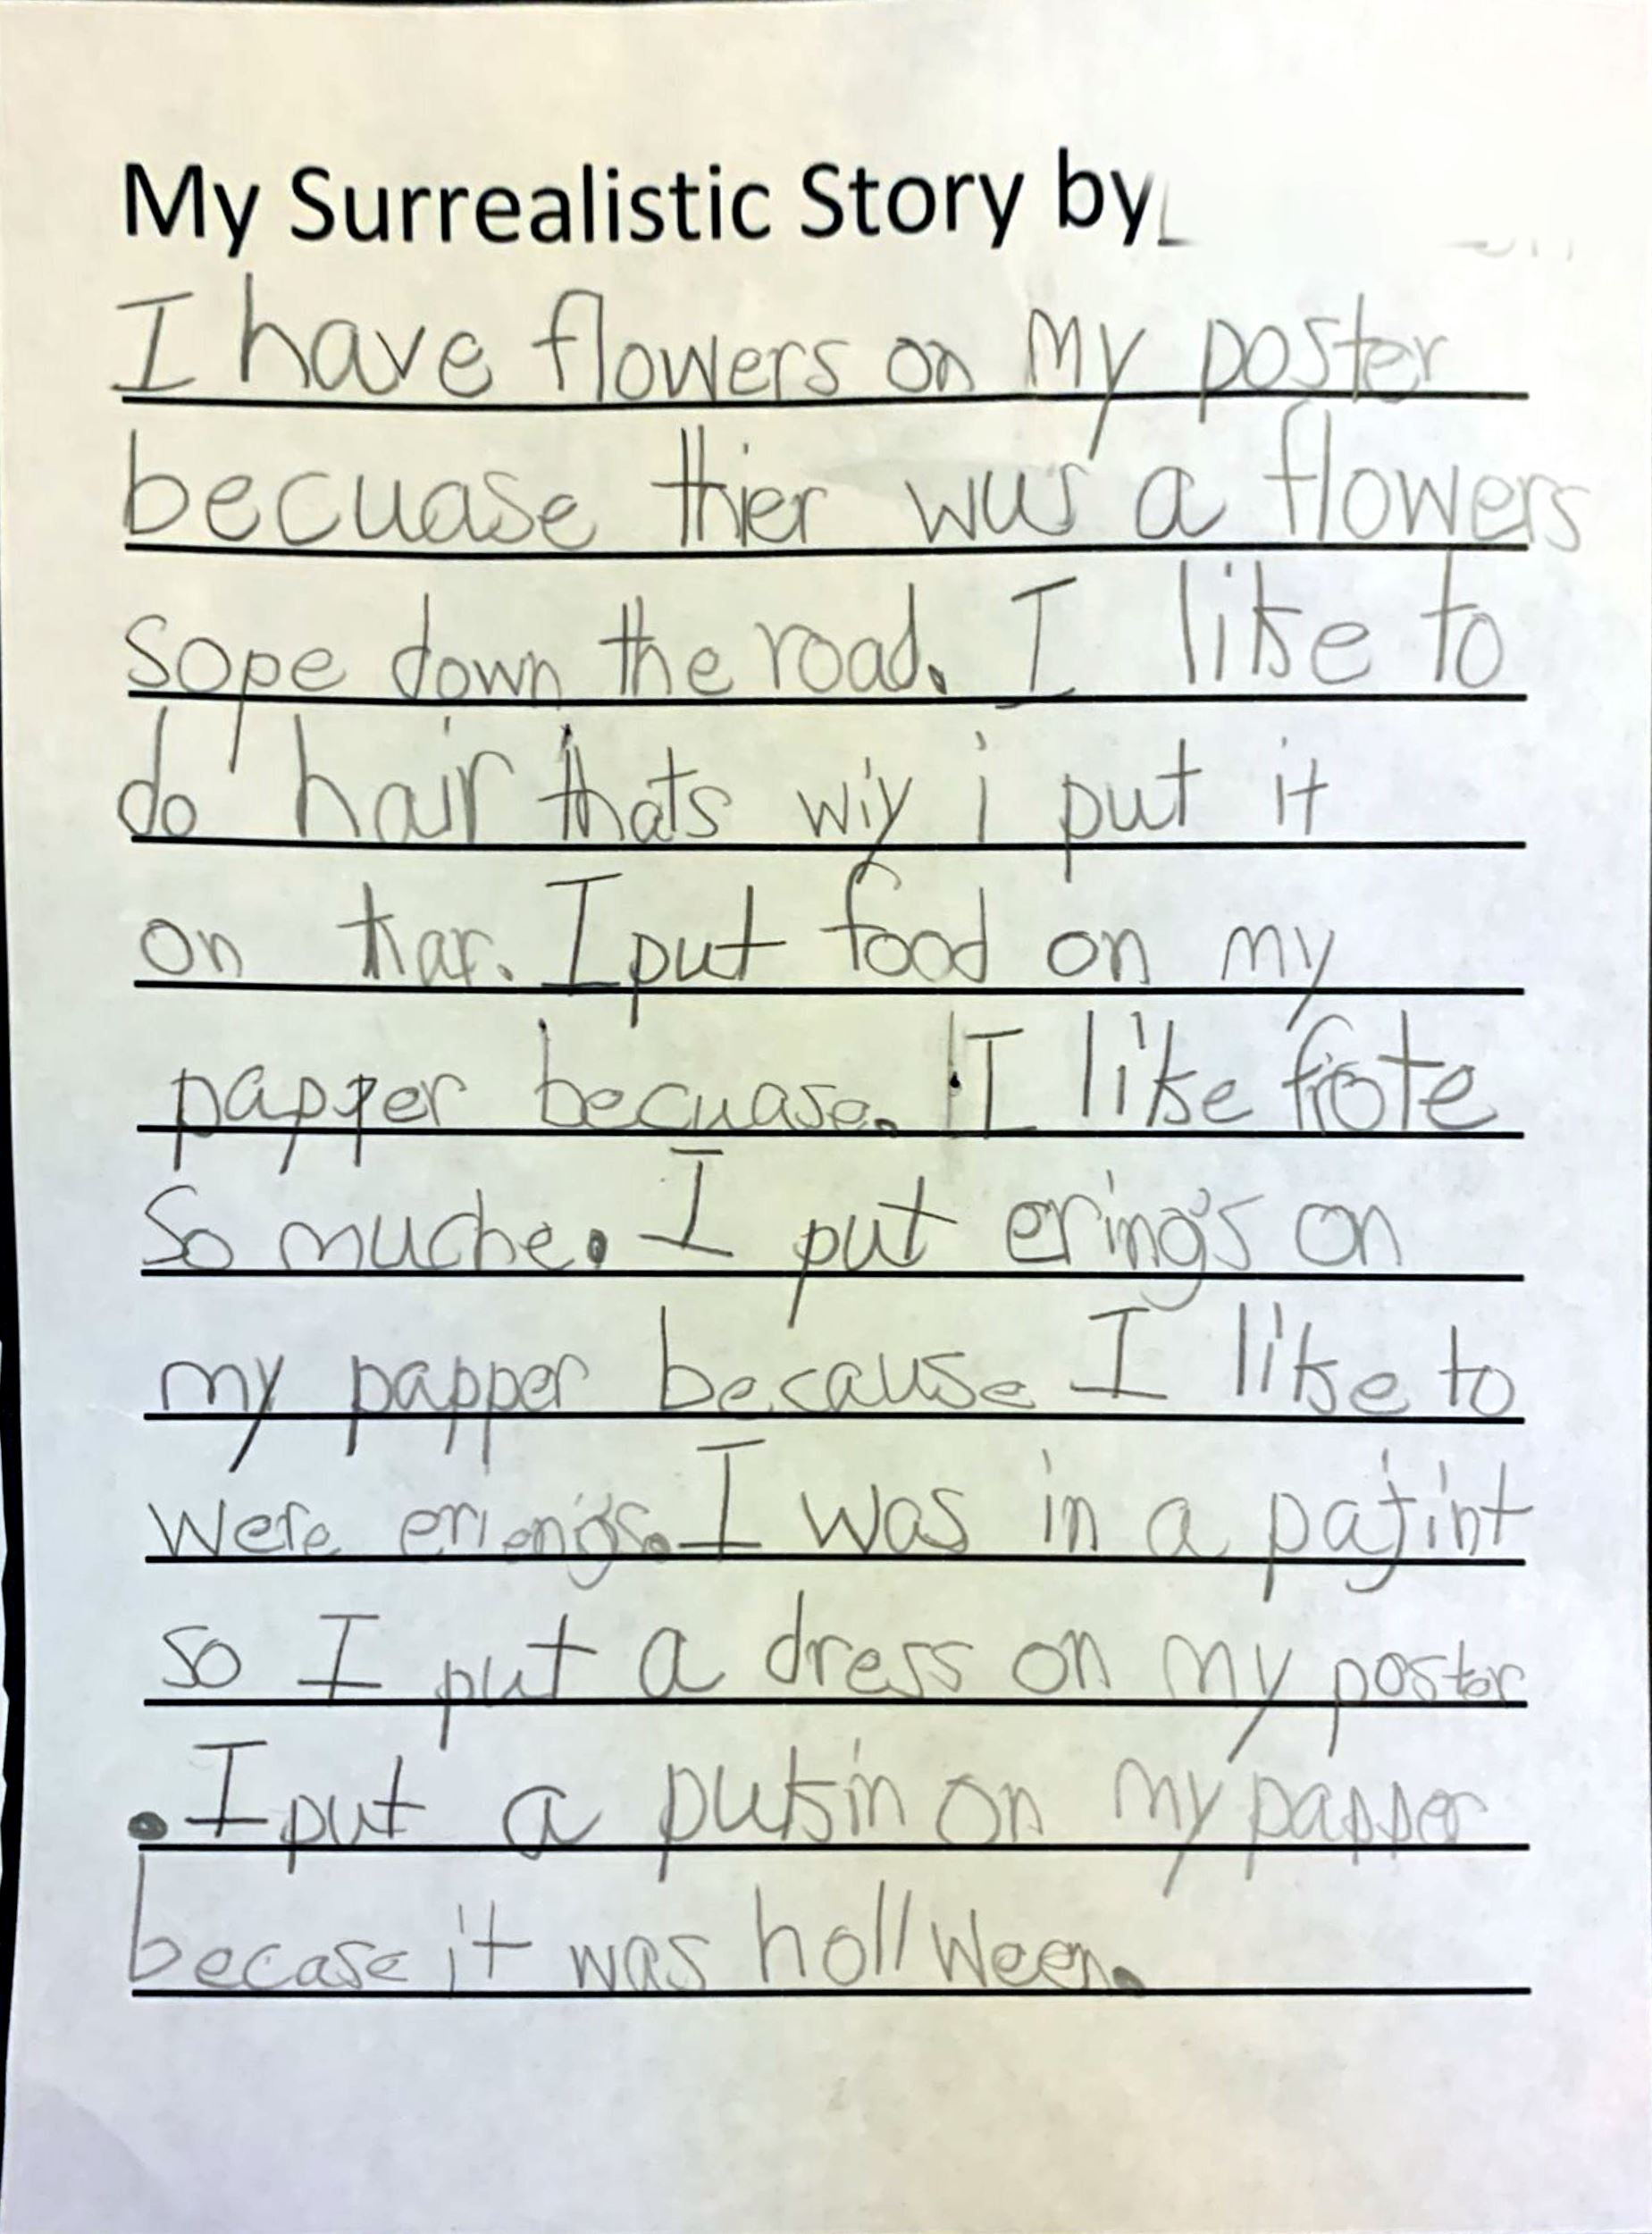 My Surrealistic Story by
I have flowers on my poster
becuase thier wus a flowers
sope down the road. I like to
do hair thats wiy i put it
on thar. I put food on my
papper becuase. I like frote
so muche. I put erings on
my papper because I like to
were eriengs. I was in a pajint
so I put a dress on my poster
. I put a puksin on my papper
becase it was hollween.